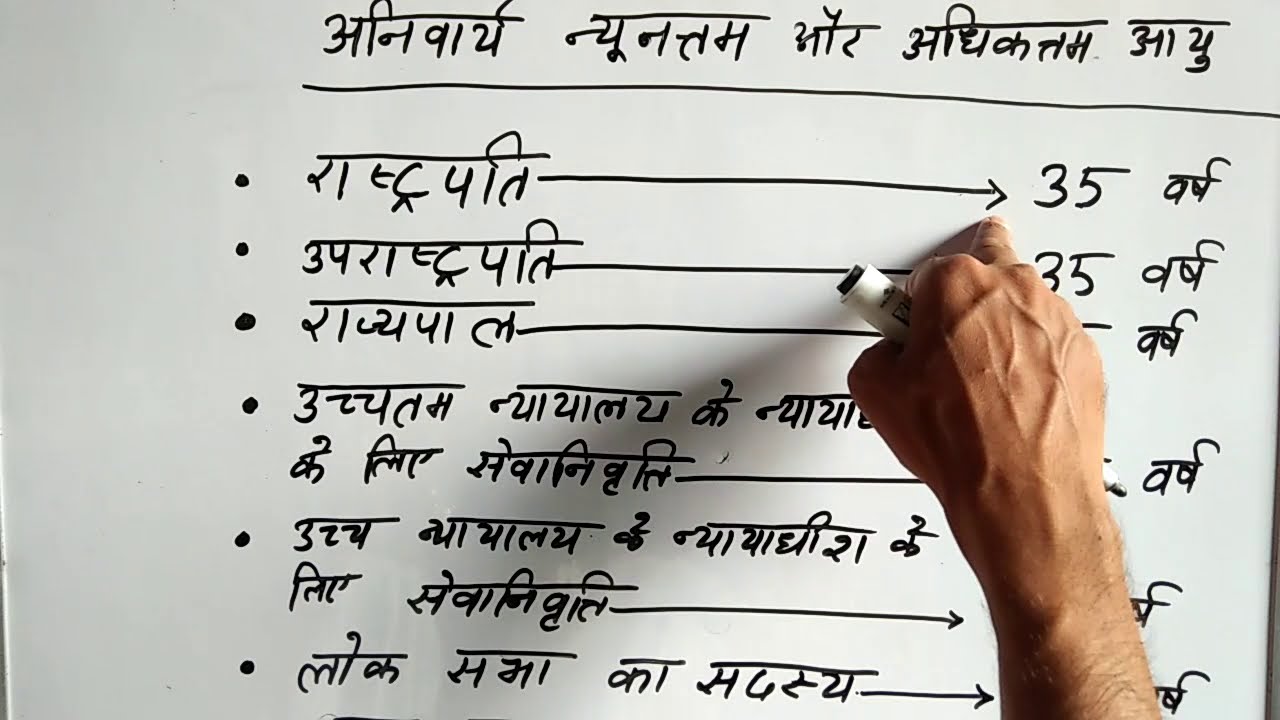 अनिवार्य न्यूनत्तम और अधिकत्तम आयु
• राष्ट्रपति → 35 वर्ष
• उपराष्ट्रपति 35 वर्ष
• राज्यपाल वर्ष
• उच्चतम न्यायालय के
के लिए सेवानिवृति वर्ष
• उच्च न्यायालय के न्यायाधीश के
लिए सेवानिवृति →
• लोक सभा का सदस्य →